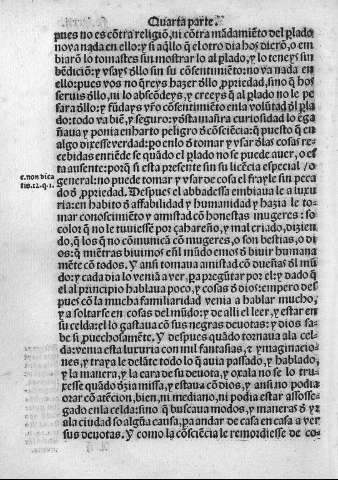 Quarta parte.
pues no es cõtra religiõ, ni cõtra mãdamiẽto del plado
no va nada en ello: y si aq̃llo q̃ el otro dia hos dierõ, o em
biarõ lo tomastes sin mostrar lo al plado, y lo teneys sin
bẽdiciõ: y vsays dllo sin su cõsentimiẽto: no va nada en
ello: pues vos no q̃reys hazer dllo, ppriedad, sino q̃ hos
seruis dllo, ni lo abscõdeys, y creeys q̃ al plado no le pe
sara dllo: y fũdays vr̃o cõsentimiẽto enla volũtad dl pla
do: todo va biẽ, y seguro: y esta maistra curiosidad lo ega
ñaua y ponia en harto peligro d cõsciẽcia: q̃ puesto q̃ en
algo dixesse verdad: po enlo d tomar y vsar dlas cosas re-
cebidas entiẽde se quãdo el plado no se puede auer, o es
ta ausente: porq̃ si esta presente sin su licẽcia especial /o
c. non dica
general: no puede tomar y vsar de cosa el frayle sin peca
tis. 12. q. 1.
do d ppriedad. Despues el abbadessa embiaua le a luxu
ria: en habito d affabilidad y humanidad y hazia le to-
mar conoscimiẽto y amistad cõ honestas mugeres: so
color q̃ no le tuuiesse por çahareño, y mal criado, dizien
do, q̃ los q̃ no cõmunicã cõ mugeres, o son bestias, o di
os: q̃ miẽtras biuimos enl mũdo emos d biuir humana
mẽte cõ todos. Y ansi tomaua amistad cõ dueñas dl mũ
do: y cada dia lo veniã a ver, pa pregũtar por el: y dado q̃
el al principio hablaua poco, y cosas d dios: empero des
pues cõ la mucha familiaridad venia a hablar mucho,
y a soltarse en cosas del mũdo: y de alli el leer, y estar en
su celda: el lo gastaua cõ sus negras deuotas: y dios sa-
be si puechosamẽte. Y despues quãdo tornaua ala cel-
da: venia esta luxuria con mul fantasias, & ymaginacio-
nes, y traya le delãte todo lo q̃ auia passado, y hablado,
y la manera, y la cara de su deuota, y oxala no se lo tru-
xesse quãdo dzia missa, y estaua cõ dios, y ansi no podia
orar cõ atẽcion, bien, ni mediano, ni podia estar assosse-
gado enla celda: sino q̃ buscaua modos, y maneras d yr
ala ciudad so algũa causa, pa andar de casa en casa a ver
sus deuotas. Y como la cõsciẽcia le remordiesse de co-